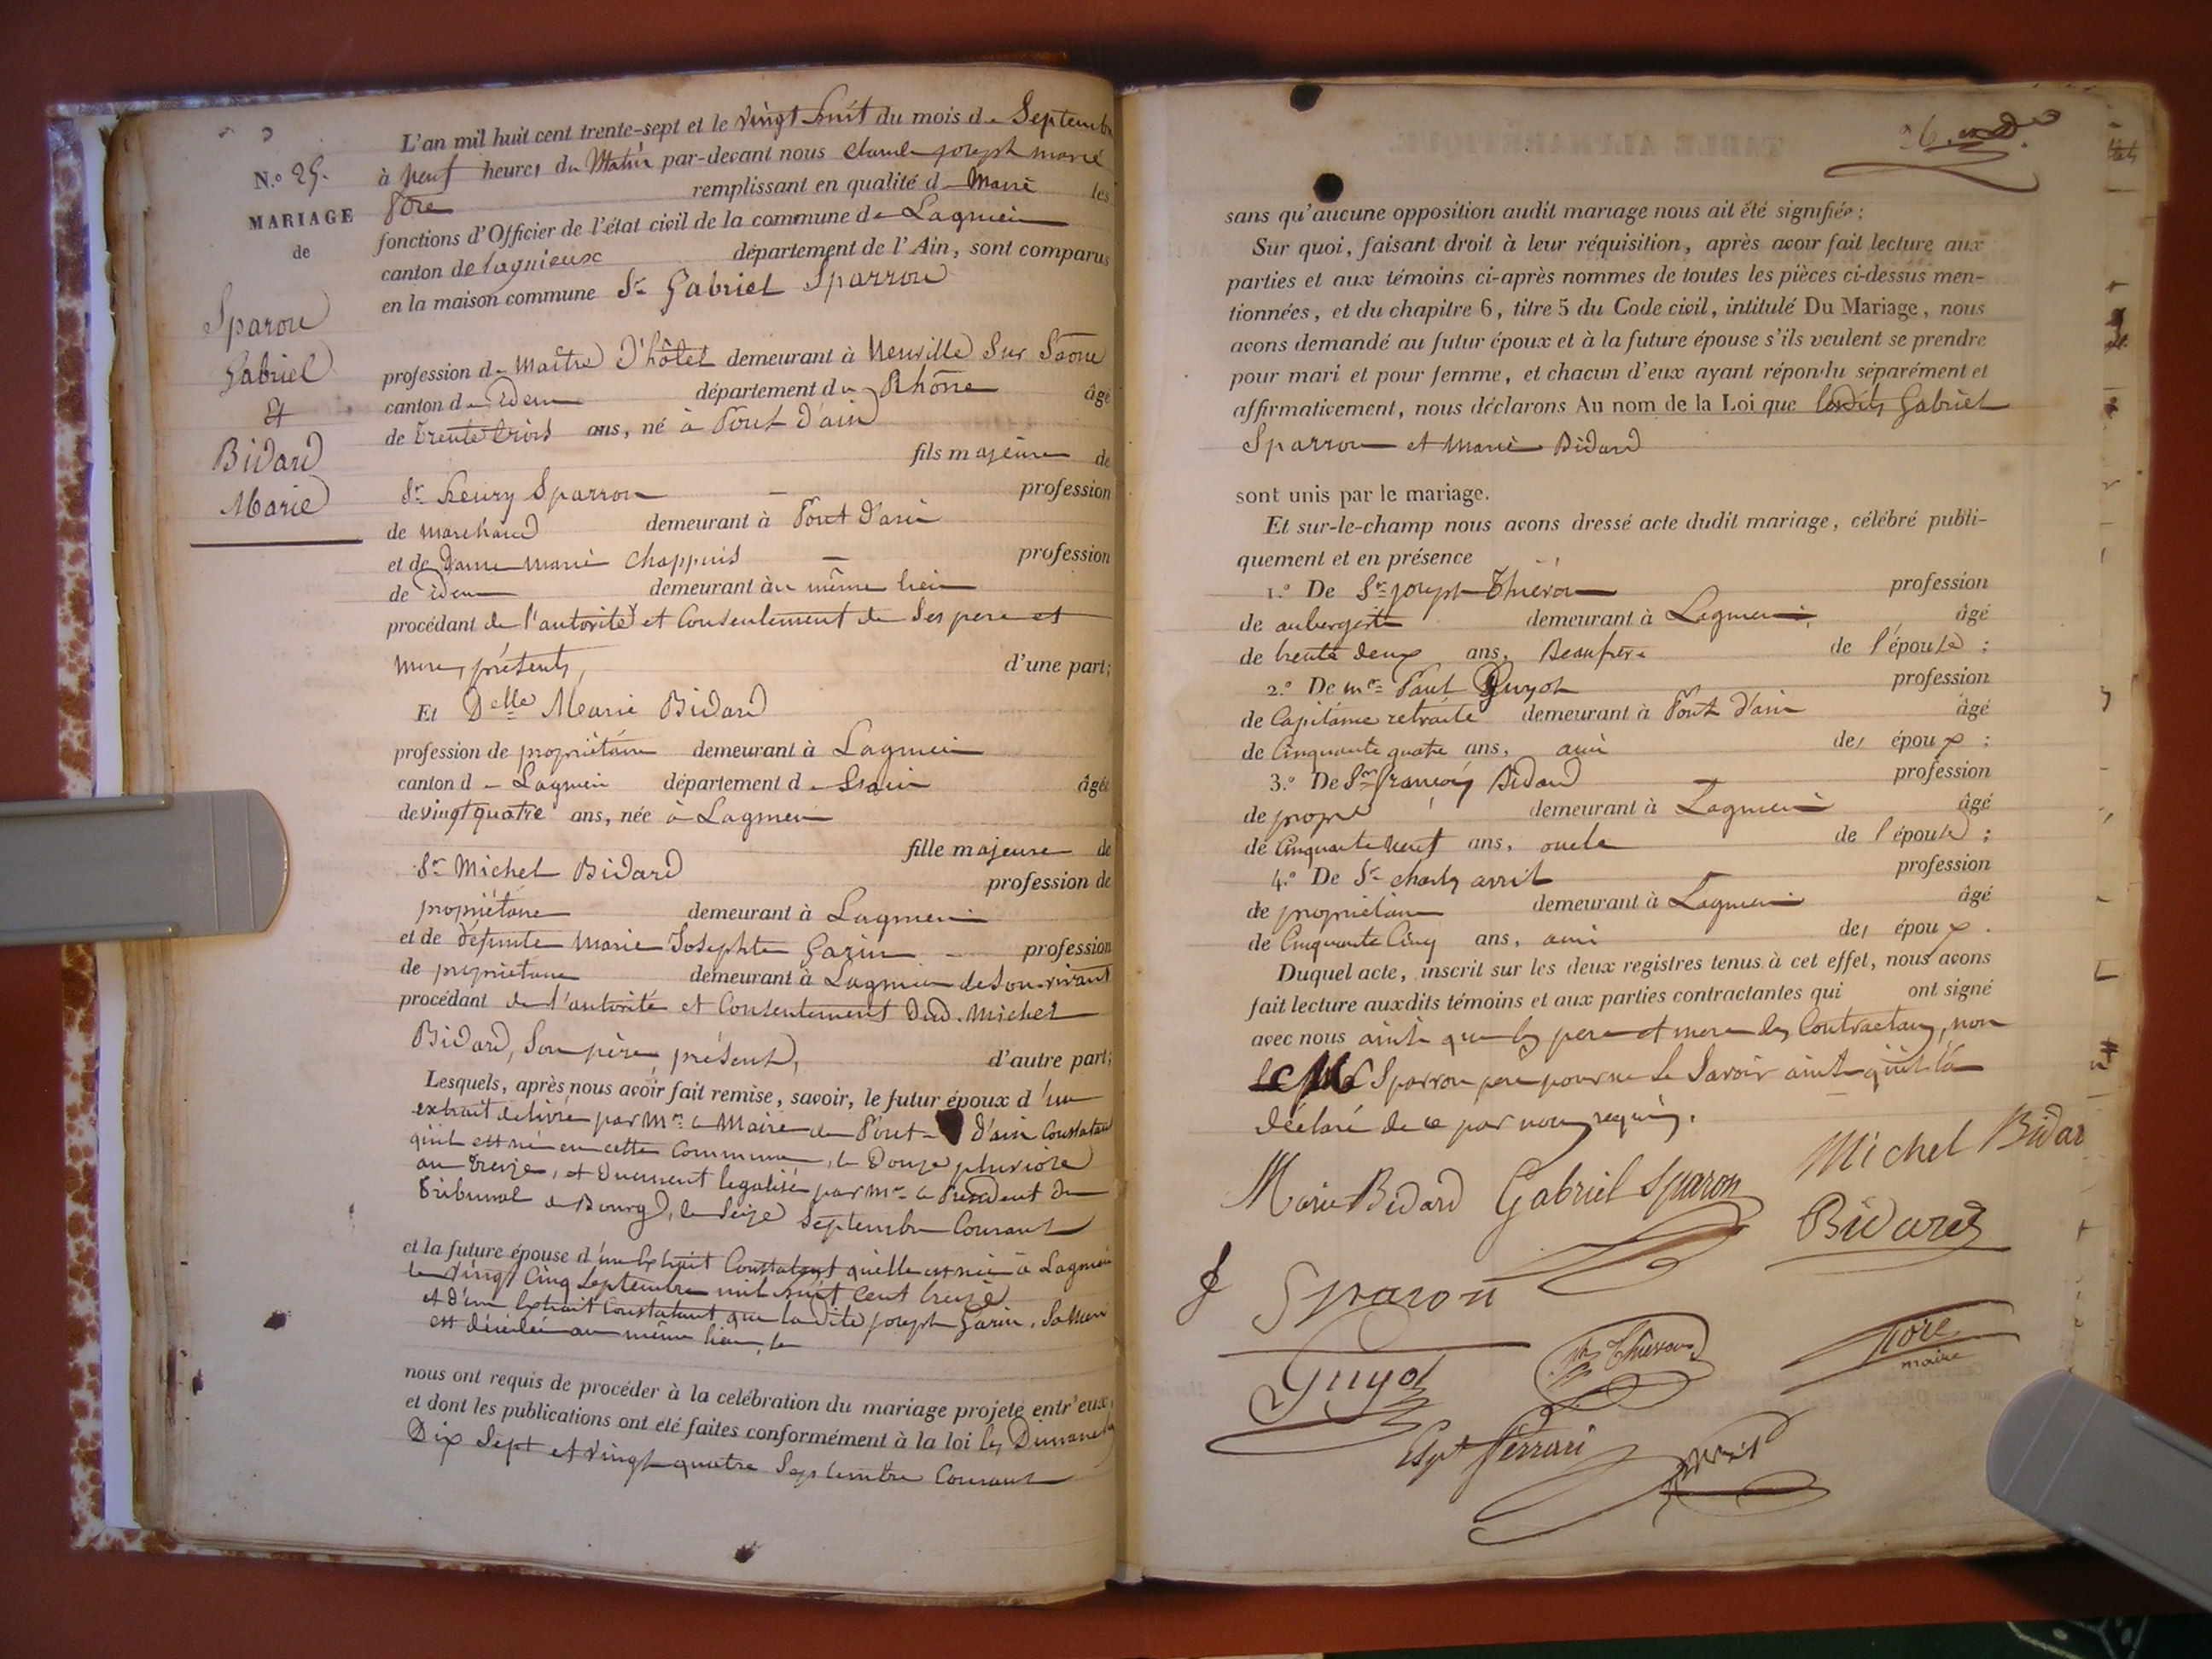 L'an mil huit cent trente-sept et le vingt huit du mois de Septembre
N.o 25. à neuf heures du Matin par-devant nous Claude joseph marie
MARIAGE
Tore remplissant en qualité de Maire les
fonctions d'Officier de l'état civil de la commune de Lagnieu
de
canton de lagnieux département de l'Ain, sont comparus
en la maison commune Sr Gabriel Sparron
Sparou
Gabriel
Et
Bidard
Marie
profession de Maître d'hôtel demeurant à Neuville Sur Saône
canton de Idem département du Rhône âgé
de trente trois ans, né à Pont d'ain
fils majeur de
Sr henry Sparron profession
de marchand demeurant à Pont d'ain
et de Dame marie chappuis profession
de Idem demeurant au même lieu
procédant de l'autorité et Consentement de Ses pere et
mere, présents, d'une part;
Et Delle Marie Bidard
profession de propriétaire demeurant à Lagnieu
canton de Lagnieu département de Lain âgée
de vingt quatre ans, née à Lagnieu
fille majeure de
Sr Michel Bidard profession de
propriétaire demeurant à Lagnieu
et de défunte Marie Josephte Garin profession
de propriétaire demeurant à Lagnieu de Son vivant
procédant de l'autorité et Consentement dud. Michel
Bidard, Son père, présent, d'autre part;
Lesquels, après nous avoir fait remise, savoir, le futur époux d'un
extrait délivré par Mr le Maire de Pont d'ain Constatant
qu'il est né en cette Commune, le Douze pluviose
an treize, et duement legalisé par Mr le Président du
Tribunal de Bourg, le Seize Septembre Courant
et la future épouse d'un Extrait Constatant qu'elle est née à Lagnieu
le Vingt Cinq Septembre mil huit Cent treize
et d'un Extrait Constatant que la dite joseph Garin, Sa Mere
est décédée au même lieu, le
nous ont requis de procéder à la celébration du mariage projeté entr'eux,
et dont les publications ont été faites conformément à la loi les Dimanches
Dix Sept et Vingt quatre Septembre Courant
26
sans qu'aucune opposition audit mariage nous ait été signifiée;
Sur quoi, faisant droit à leur réquisition, après avoir fait lecture aux
parties et aux témoins ci-après nommes de toutes les pièces ci-dessus men-
tionnées, et du chapitre 6, titre 5 du Code civil, intitulé Du Mariage, nous
avons demandé au futur époux et à la future épouse s'ils veulent se prendre
pour mari et pour femme, et chacun d'eux ayant répondu séparément et
affirmativement, nous déclarons Au nom de la Loi que lesdits Gabriel
Sparron et Marie Bidard
sont unis par le mariage.
Et sur-le-champ nous avons dressé acte dudit mariage, célébré publi-
quement et en présence
1.o De Sr joseph Thiévon profession
de aubergiste demeurant à Lagnieu âgé
de trente deux ans, Beaufrère de l'épouse;
2.o De mr Paul Guyot profession
de Capitaine retraité demeurant à Pont d'ain âgé
de Cinquante quatre ans, ami des époux;
3.o De Sr françois Bidard profession
de propre demeurant à Lagnieu âgé
de Cinquante neuf ans, oncle de l'épouse;
4.o De Sr charles avril profession
de propriétaire demeurant à Lagnieu âgé
de Cinquante Cinq ans, ami des époux.
Duquel acte, inscrit sur les deux registres tenus à cet effet, nous avons
fait lecture auxdits témoins et aux parties contractantes qui ont signé
avec nous ainsi que les pere et mere des Contractans, non
Sparron pere pour ne le Savoir ainsi qu'il l'a
déclaré de ce par nous requis.
Marie Bidard Gabriel Sparon Michel Bidar
Bidard
Sparon
Guyot Thiévon Tore
maire
Ferrari avril